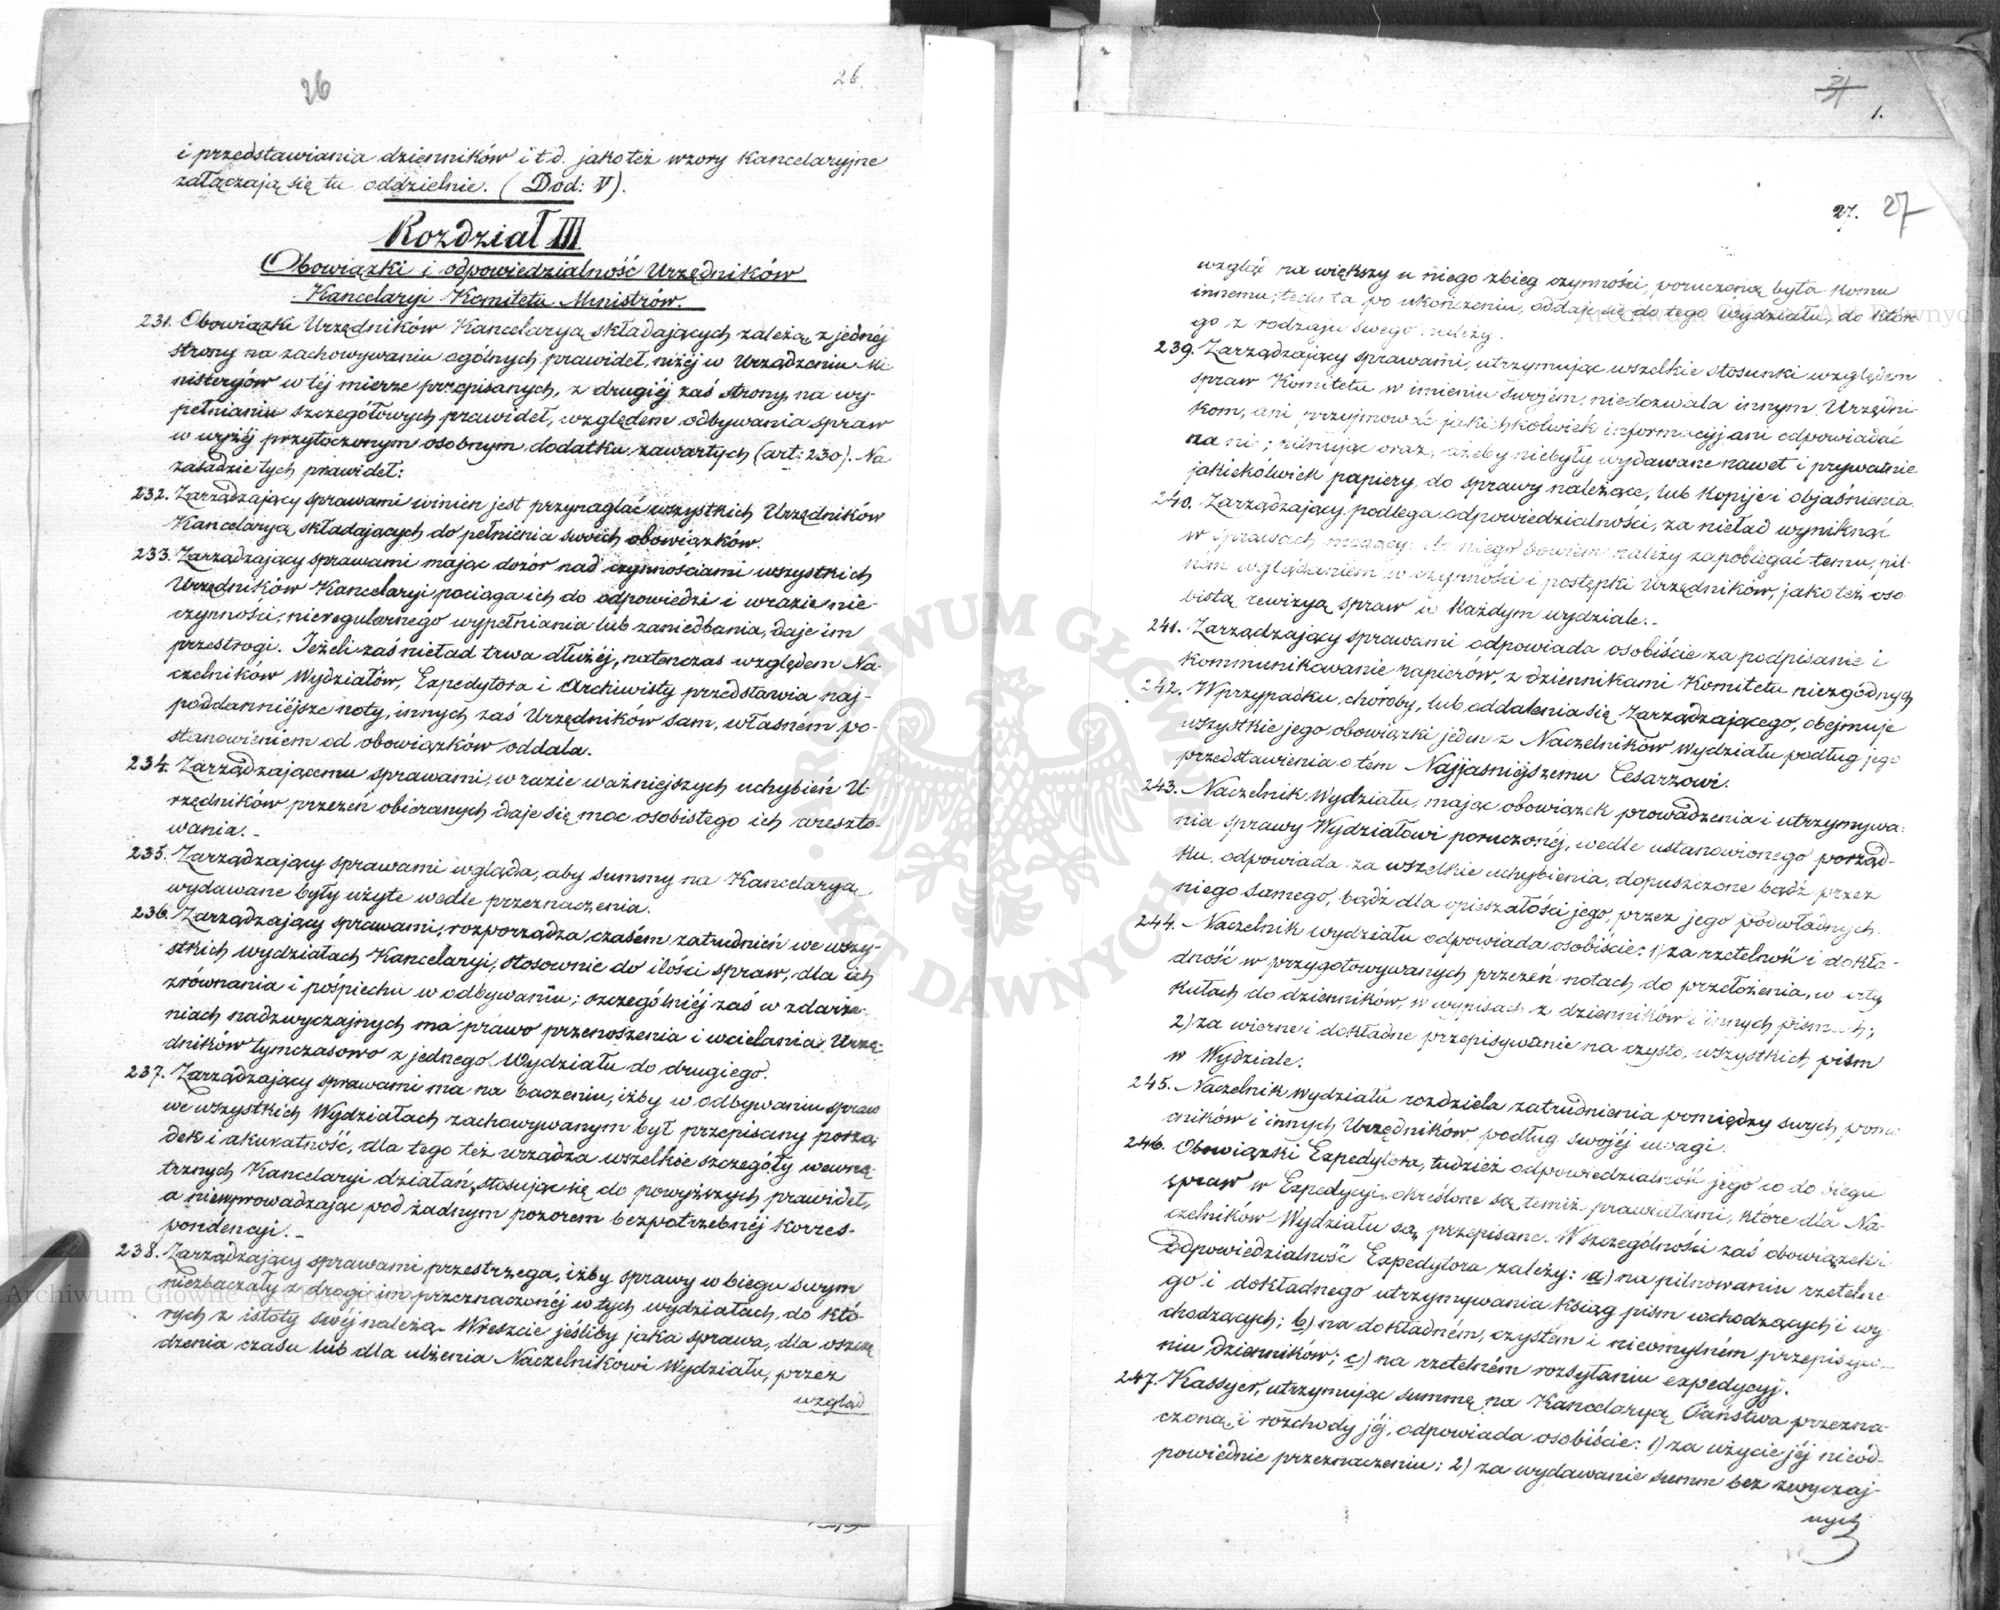 26
26.
i przedstawiania dzienników i t d. jako też wzory Kancelaryjne
załączają się tu oddzielnie. (Dod: V).
Rozdział III
Obowiązki i odpowiedzialność Urzędników
Kancelaryi Komitetu Ministrów.
231. Obowiązki Urzędników Kancelaryą składających zależą, z jednéj
strony na zachowywaniu ogólnych prawideł, niżéj w Urządzeniu Mi
nisteryów w téj mierze przepisanych, z drugiéj zaś strony, na wy-
pełnianiu szczegółowych prawideł, względem odbywania spraw
w wyżéj przytoczonym osobnym dodatku zawartych (art: 230). Na
zasadzie tych prawideł:
232. Zarządzający sprawami winien jest przynaglać wszystkich Urzędników
Kancelaryą składających do pełnienia swoich obowiązków.
233. Zarządzający sprawami mając dozór nad czynnościami wszystkich
Urzędników Kancelaryi, pociąga ich do odpowiedzi i w razie nie-
czynności, nieregularnego wypełniania lub zaniedbania, daje im
przestrogi. Jeżeli zaś nieład trwa dłużéj, natenczas względem Na-
czelników Wydziałów, Expedytora i Archiwisty przedstawia naj-
poddanniéjsze noty, innych zaś Urzędników sam, własném po-
stanowieniem od obowiązków oddala.
234. Zarządzającemu sprawami, w razie ważniejszych uchybień U-
rzędników przezeń obieranych, daje się moc osobistego ich areszto-
wania. -
235. Zarządzający sprawami wgląda, aby summy na Kancelaryą
wydawane były użyte wedle przeznaczenia.
236. Zarządzający sprawami, rozporządza, czasém zatrudnień we wszy-
stkich wydziałach Kancelaryi, stosownie do ilości spraw, dla ich
zrównania i pośpiechu w odbywaniu; szczególniéj zaś w zdarze-
niach nadzwyczajnych ma prawo przenoszenia i wcielania Urzę-
dników tymczasowo z jednego Wydziału do drugiego.
237. Zarządzający sprawami ma na baczeniu, iżby w odbywaniu spraw
we wszystkich Wydziałach zachowywanym był przepisany porzą
dek i akuratność, dla tego też urządza wszelkie szczegóły wewnę-
trznych Kancelaryi działań, stosując się do powyższych prawideł,
a niewprowadzając pod żadnym pozorem bezpotrzebnéj korres-
pondencyi. -
238. Zarządzający sprawami przestrzega, iżby sprawy w biegu swym
niezbaczały z drogi im przeznaczonéj w tych wydziałach, do któ-
rych z istoty swéj należą. Wreszcie jeśliby jaka sprawa, dla oszczę
dzenia czasu lub dla ulżenia Naczelnikowi Wydziału, przez
wzgląd
31
1.
27. 27
wzgląd na większy u niego zbieg czynności, poruczoną była komu
innemu, tedy ta po ukończeniu, oddaje się do tego wydziału, do któr
go z rodzaju swego należy.
239. Zarządzający sprawami, utrzymując wszelkie stosunki względem
spraw Komitetu w imieniu swojém, niedozwala innym Urzędni
kom, ani przyjmować jakichkolwiek informacyj, ani odpowiadać
na nie; pilnując oraz, ażeby niebyły wydawane nawet i prywatnie
jakiekolwiek papiery, do sprawy należące, lub kopije i objaśnienia.
240. Zarządzający podlega odpowiedzialności, za nieład wyniknąć
w sprawach mogący; do niego bowiem należy zapobiegać temu, pil-
nem wglądaniem w czynności i postępki Urzędników, jako też oso
bistą rewizyą spraw w każdym wydziale. -
241. Zarządzający sprawami odpowiada osobiście za podpisanie i
kommunikowanie papierów, z dziennikami Komitetu niezgodnych
242. W przypadku choroby, lub oddalenia się Zarządzającego, obejmuje
wszystkie jego obowiązki jeden z Naczelników Wydziału podług jego
przedstawienia o tém Najjaśniéjszemu Cesarzowi.
243. Naczelnik Wydziału, mając obowiązek prowadzenia i utrzymywa-
nia sprawy Wydziałowi poruczonéj, wedle ustanowionego porząd-
ku, odpowiada za wszelkie uchybienia, dopuszczone bądź przez
niego samego, bądź dla opieszałości jego, przez jego podwładnych.
244. Naczelnik wydziału odpowiada osobiście: 1) za rzetelność i dokła-
dność w przygotowywanych przezeń notach do przełożenia, w arty
kułach do dzienników, w wypisach z dzienników i innych pismach;
2) za wierne i dokładne przepisywanie na czysto, wszystkich pism
w Wydziale.
245. Naczelnik wydziału rozdziela zatrudnienia pomiędzy swych pomo
cników i innych Urzędników, podług swojéj uwagi.
246. Obowiązki Expedytora, tudzież odpowiedzialność jego co do biegu
spraw w Expedycyi, określone są temiż prawidłami, które dla Na-
czelników Wydziału są przepisane. W szczególności zaś obowiązek i
odpowiedzialność Expedytora zależy: a) na pilnowaniu rzetelne
go i dokładnego utrzymywania ksiąg pism wchodzących i wy
chodzących; b) na dokładném, czystém i nieomylném przepisywa
niu dzienników; c) na rzetelném rozsyłaniu expedycyj.
247. Kassyer, utrzymując summę na Kancelaryą Państwa przezna-
czoną, i rozchody jéj, odpowiada osobiście: 1) za użycie jéj nieod-
powiednie przeznaczeniu; 2) za wydawanie summ bez zwyczaj-
nych
Archiwum Główne Akt Dawnych
Archiwum Główne Akt Dawnych
ARCHIWUM GŁÓWNE · AKT DAWNYCH ·